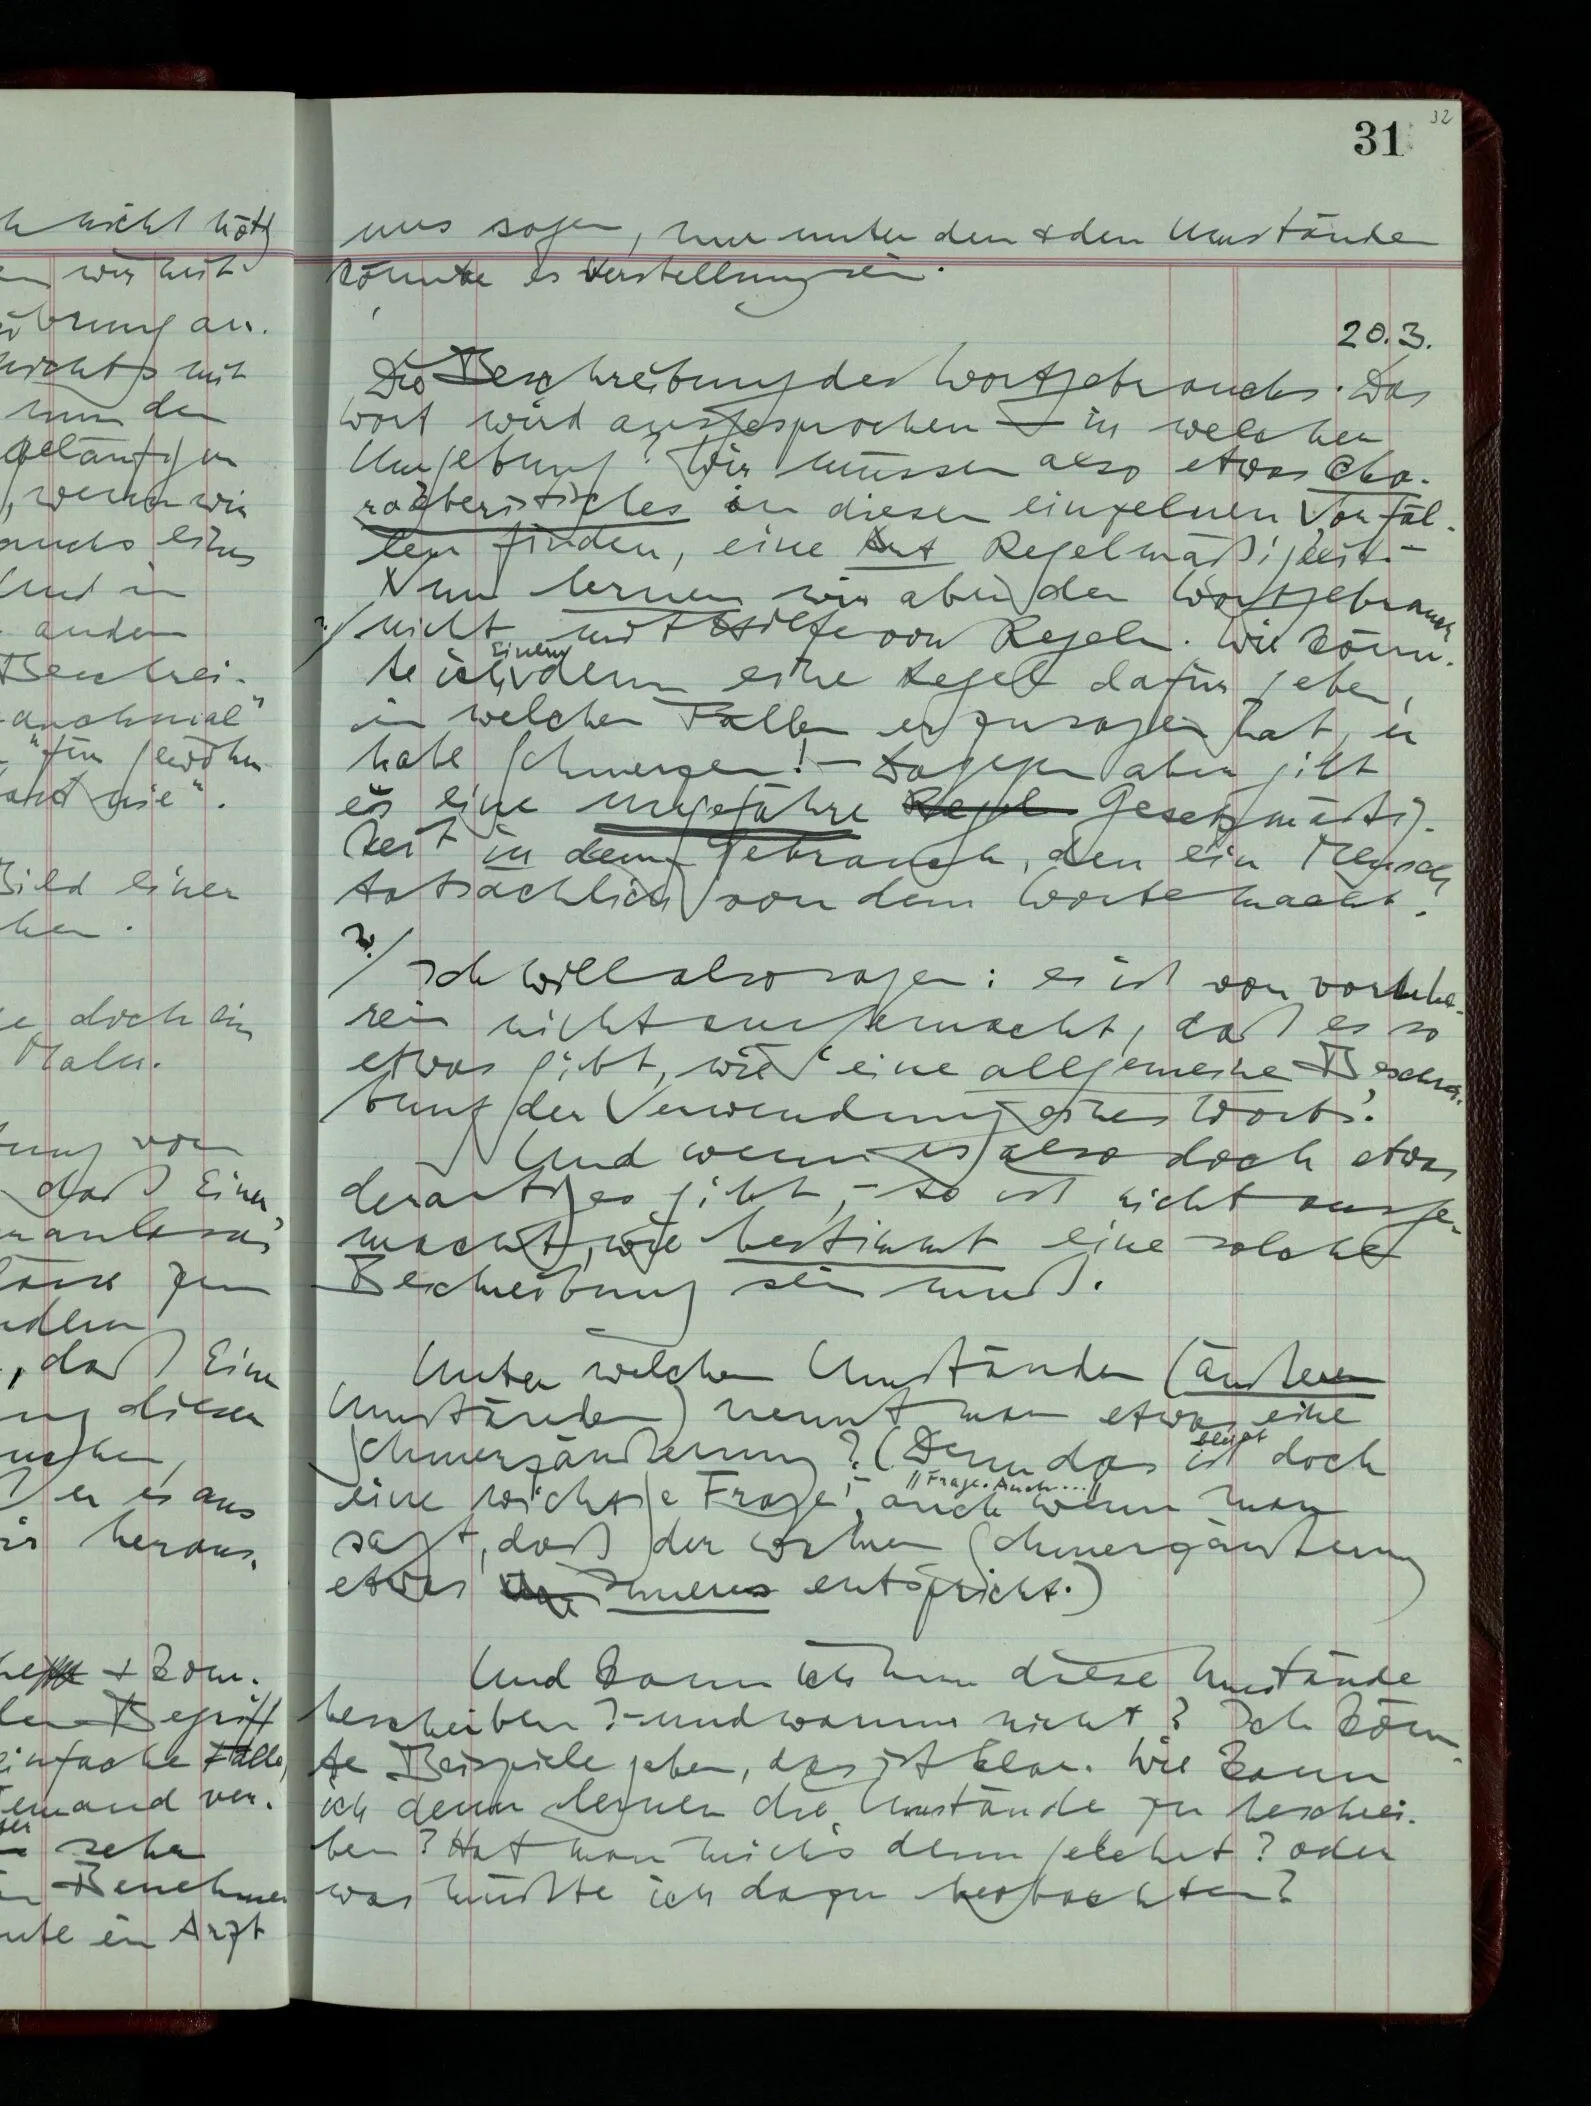 h nicht nötig
en wir mit
übung an.
nichts mit
nun den
geläufigen
, wenn wir
auchs eines
Und in
anden
Beschrei-
manchmal"
"für gewöhn
fast nie".
Bild einer
hen.
e doch ein
Maler.
ung von
daß Einer
daß Eine
ng dieser
machen,
er es aus
ir heraus.
+ kom-
len Begriff
einfache Fälle,
Jemand ver-
sehr
in Benehmen
ute ein Arzt
31
32
uns sagen, nur unter den & den Umständen
könnte es Verstellung sein.
20.3.
Die Beschreibung des Wortgebrauchs. Das
Wort wird ausgesprochen – in welcher
Umgebung? Wir müssen also etwas Cha-
rakteristisches in diesen einzelnen Vorfäl-
len finden, eine Art Regelmäßigkeit. –
Nun lernen wir aber den Wortgebrauch
?/ nicht mit Hilfe von Regeln. Wie könn-
einem
te ich denn eine Regel dafür geben,
in welchen Fällen er zu sagen hat, er
habe Schmerzen! – Dagegen aber gibt
es eine ungefähre Regel Gesetzmäßig-
keit in dem Gebrauch, den ein Mensch
tatsächlich von dem Worte macht.
?/
Ich will also sagen: es ist von vornhe-
rein nicht ausgemacht, daß es so
etwas gibt, wie 'eine allgemeine Beschrei-
bung der Verwendung eines Worts'.
Und wenn es also doch etwas
derartiges gibt, – so ist nicht ausge-
macht, wie bestimmt eine solche
Beschreibung sein muß.
Unter welchen Umständen (äußeren
Umständen) nennt man etwas eine
Schmerzäußerung? (Denn das ist doch
bleibt
eine wichtige Frage, auch wenn man
"Frage. Auch ..."
sagt, daß der wahren Schmerzäußerung
etwas Inneres entspricht.)
Und kann ich nun diese Umstände
beschreiben? – und warum nicht? Ich könn-
te Beispiele geben, das ist klar. Wie kann
ich denn lernen die Umstände zu beschrei-
ben? Hat man mich's denn gelehrt? oder
was müßte ich dazu beobachten?